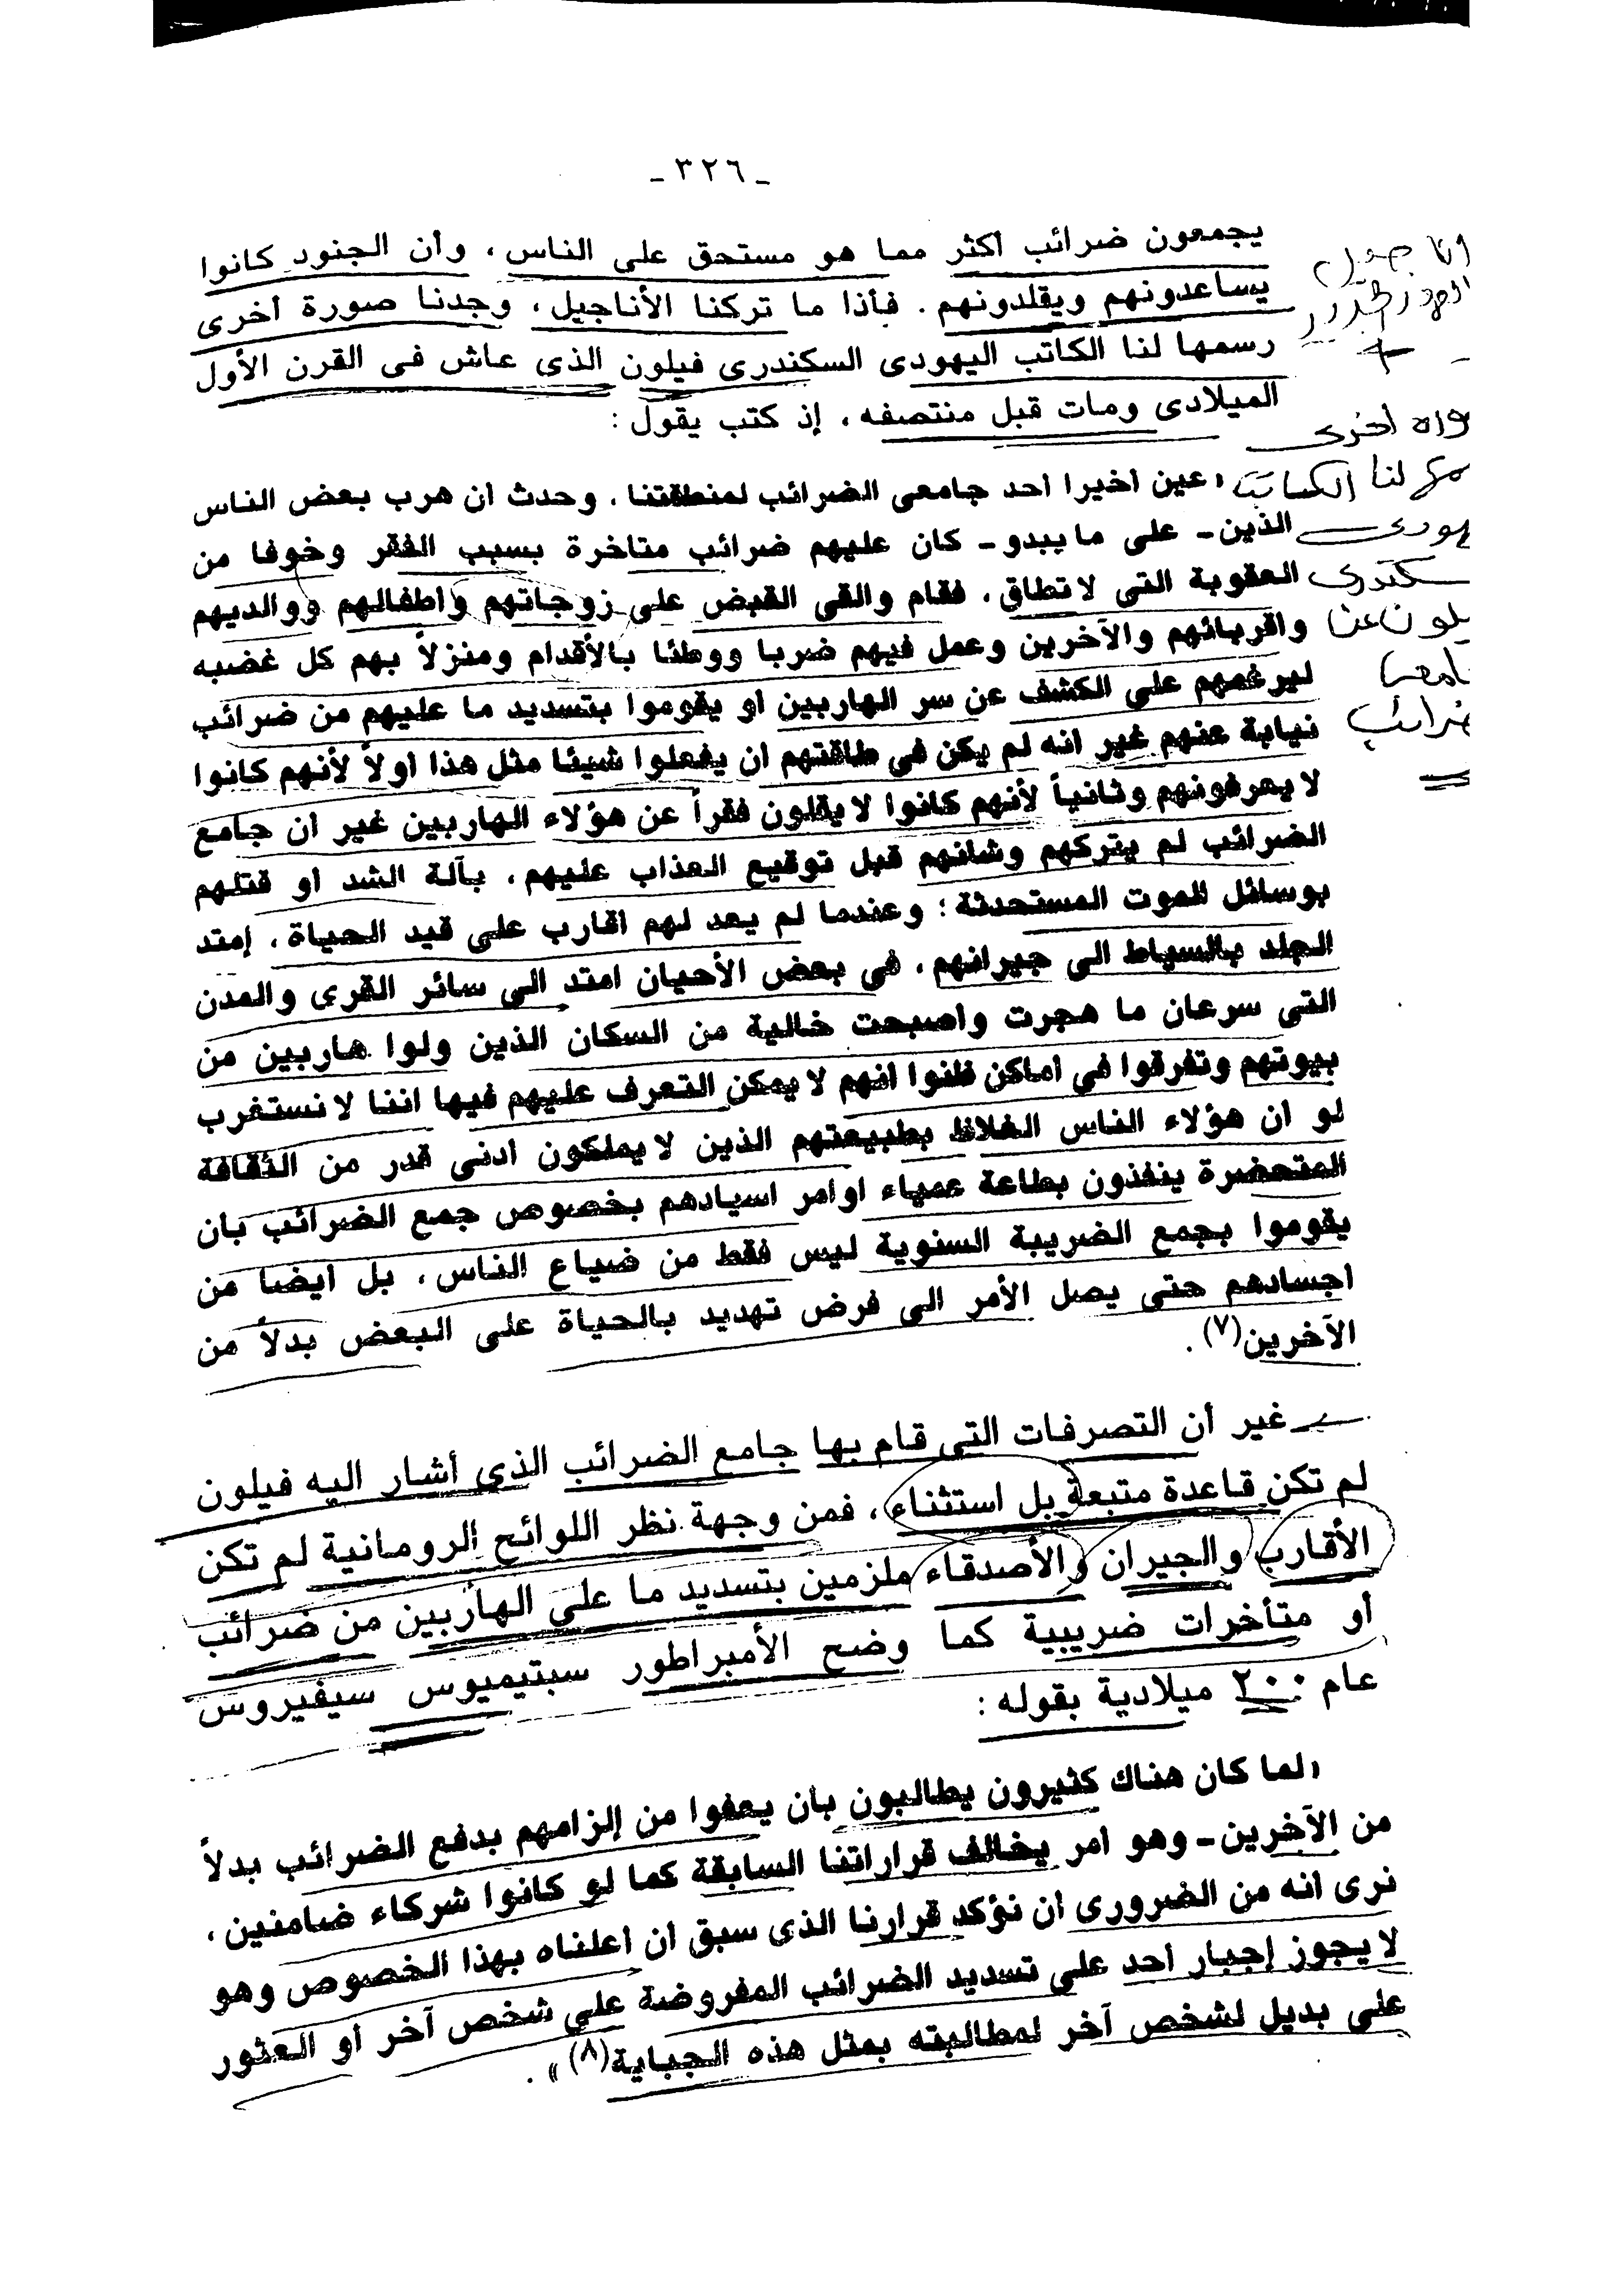 ـ ٣٢٦ ـ
يجمعون ضرائب أكثر مما هو مستحق على الناس ، وأن الجنود كانوا
يساعدونهم ويقلدونهم . فأذا ما تركنا الأناجيل ، وجدنا صورة أخرى
رسمها لنا الكاتب اليهودى السكندرى فيلون الذى عاش فى القرن الأول
الميلادى ومات قبل منتصفه ، إذ كتب يقول :
، عين أخيرا أحد جامعى الضرائب لمنطقتنا . وحدث أن هرب بعض الناس
الذين ـ على ما يبدو ـ كان عليهم ضرائب متاخرة بسبب الفقر وخوفا من
العقوبة التى لا تطاق ، فقام والقى القبض على زوجاتهم وأطفالهم ووالديهم
واقربائهم والآخرين وعمل فيهم ضربا ووطئا بالأقدام ومنزلاً بهم كل غضبه
ليرغمهم على الكشف عن سر الهاربين أو يقوموا بتسديد ما عليهم من ضرائب
نيابة عنهم غير انه لم يكن فى طاقتهم أن يفعلوا شيئا مثل هذا أولاً لأنهم كانوا
لا يعرفونهم وثانياً لأنهم كانوا لا يقلون فقراً عن هؤلاء الهاربين غير أن جامع
الضرائب لم يتركهم وشانهم قبل توقيع العذاب عليهم ، بآلة الشد أو قتلهم
بوسائل للموت المستحدثة ؛ وعندما لم يعد لهم اقارب على قيد الحياة ، إمتد
الجلد بالسياط الى جيرانهم ، فى بعض الأحيان امتد الى سائر القرى والمدن
التى سرعان ما هجرت وأصبحت خالية من السكان الذين ولوا هاربين من
بيوتهم وتفرقوا فى أماكن ظنوا انهم لا يمكن التعرف عليهم فيها اننا لا نستغرب
لو أن هؤلاء الناس الغلاظ بطبيعتهم الذين لا يملكون أدنى قدر من الثقافة
المتحضرة ينفذون بطاعة عمياء اوامر اسيادهم بخصوص جمع الضرائب بان
يقوموا بجمع الضريبة السنوية ليس فقط من ضياع الناس ، بل أيضا من
أجسادهم حتى يصل الأمر الى فرض تهديد بالحياة على البعض بدلاً من
الآخرين(٧) .
غير أن التصرفات التى قام بها جامع الضرائب الذى أشار اليه فيلون
لم تكن قاعدة متبعة بل استثناء ، فمن وجهة نظر اللوائح الرومانية لم تكن
الأقارب والجيران والأصدقاء ملزمين بتسديد ما على الهاربين من ضرائب
أو متأخرات ضريبية كما وضح الأمبراطور سبتيميوس سيفيروس
عام ٢٠٠ ميلادية بقوله :
، لما كان هناك كثيرون يطالبون بان يعفوا من إلزامهم بدفع الضرائب بدلاً
من الآخرين ـ وهو امر يخالف قراراتنا السابقة كما لو كانوا شركاء ضامنين ،
نرى انه من الضرورى أن نؤكد قرارنا الذى سبق أن أعلناه بهذا الخصوص وهو
لا يجوز إجبار أحد على تسديد الضرائب المفروضة على شخص آخر أو العثور
على بديل لشخص آخر لمطالبته بمثل هذه الجباية(٨) » .
أخرى
لنا الكاتب